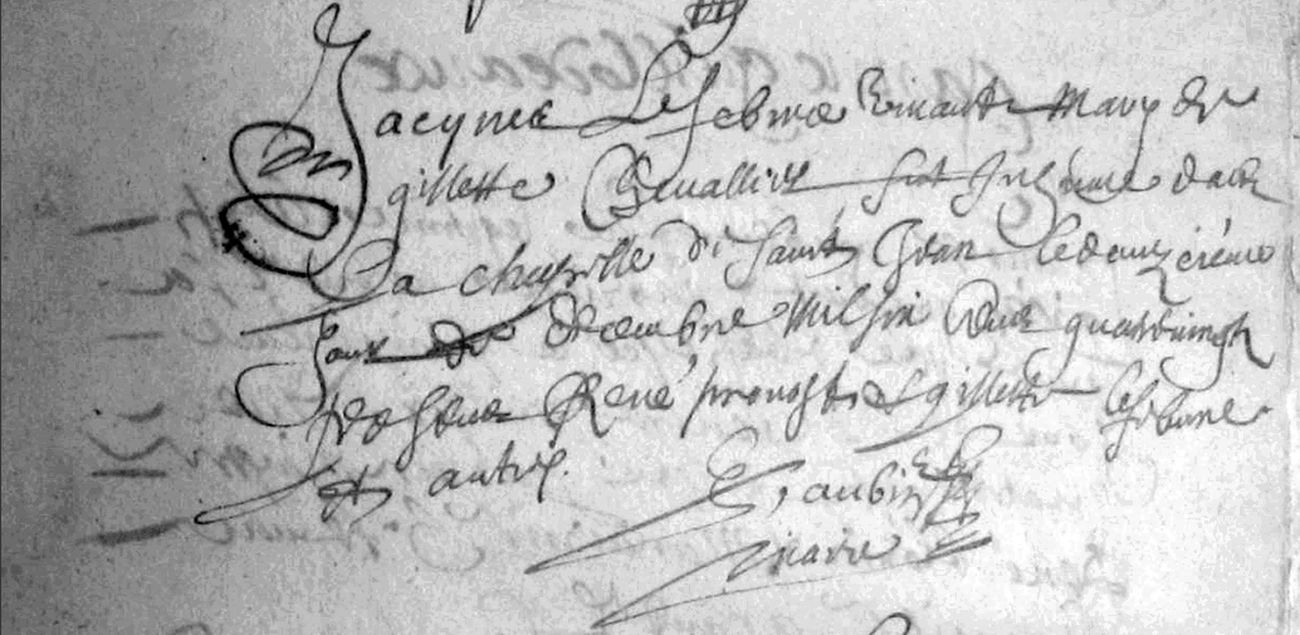 Jacques Lefebvre vivant mary de
gillette Chevallier fut Inhumé dans
la chapelle de Saint Jean le deuxiéme
Jour de decembre Mil six Cens quatrevingts
presens René prevost gillette lefebvre
et autres.
aubin
vicaire